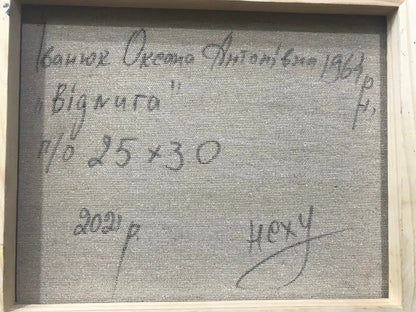 Іванюк Оксана Антонівна 1964 р н.
"Відлига"
п/о 25×30
2021 р